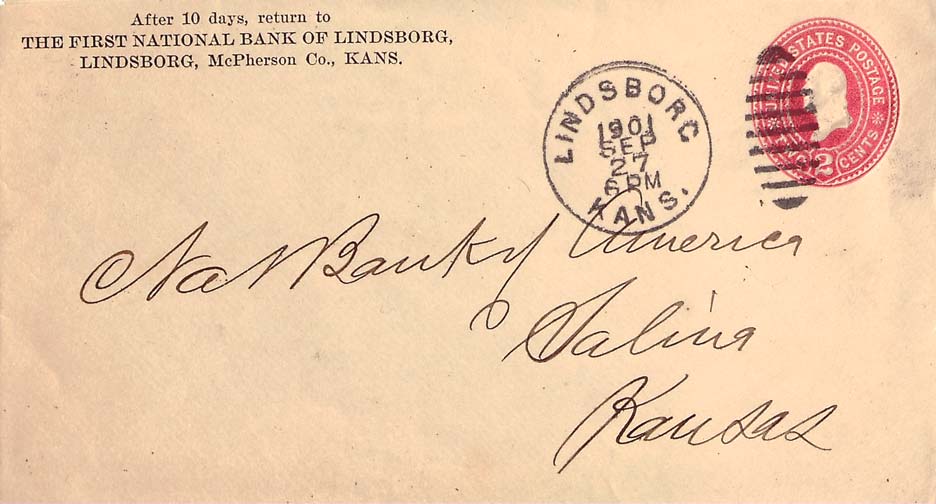 After 10 days, return to
THE FIRST NATIONAL BANK OF LINDSBORG,
LINDSBORG, McPherson Co., KANS.
LINDSBORG
1901
SEP
27
6 PM
KANS.
UNITED STATES POSTAGE
TWO 2 CENTS
Nat Bank of America
Salina
Kansas